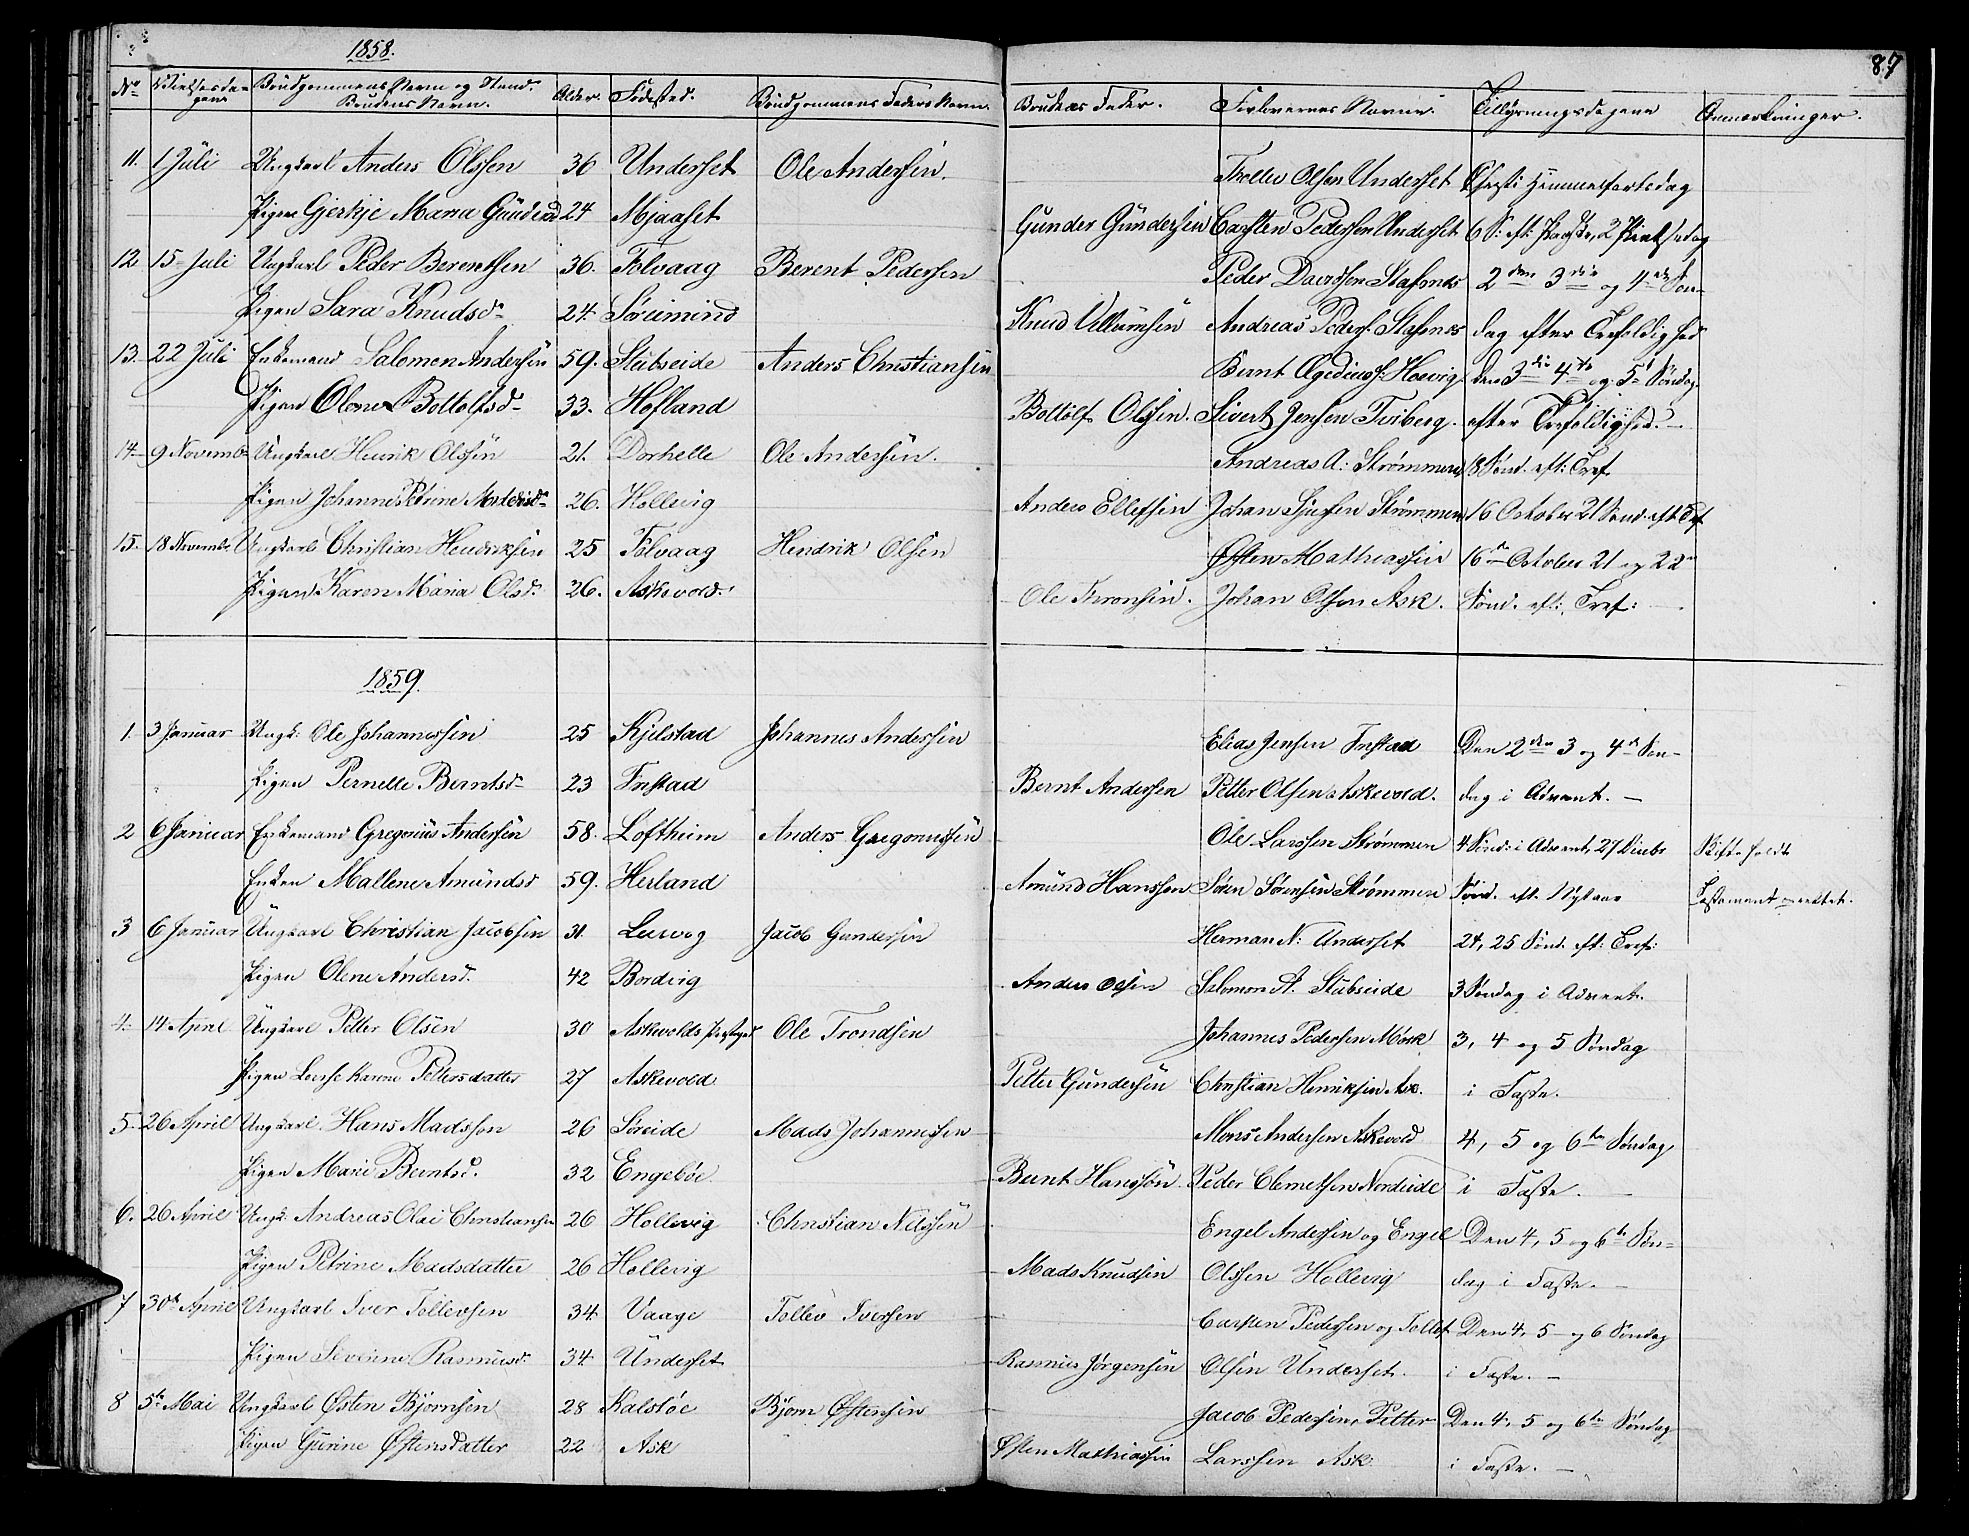 1858.
87
No Vielsesdagene Brudgommens Navn og Stand. Brudens Navn. Alder. Fødested. Brudgommens Faders Navn. Brudens Fader. Forlovernes Navne. Tillysningsdagene Anmærkninger.
11. 1 Juli Ungkarl Anders Olssen 36 Underset Ole Anderssen. Tholler Olsen Underset Christi Himmelfartsdag
Pigen Gjerkje Maria Gunders 24 Mjaaset Gunder Gunderssen Carsten Pederssen Underset 6 S: eft: Paaske, 2 Pintsedag
12 15 Juli Ungkarl Peder Berentsen 36. Folvaag Berent Pedersen Peder Davidssen Stafsnes 2den 3die og 4de Søn-
Pigen Sara Knudsd. 24. Søreimind Knud Villumsen Andreas Peders: Stafsnes dag efter Trefoldighed
13. 22 Juli Enkemand Salomon Anderssen 59. Stubseide Anders Christiansen Bernt Egedeuss: Hoevig den 3die 4de og 5te Søndag
Pigen Olene Bottolfsd. 33. Hofland Bottolf Olssen. Sivert Jensen Tviberg. efter Trefoldighed. —
14. 9 Novembr Ungkarl Henrik Olssen 21. Dorhelle Ole Anderssen. Andreas A: Strømmen 18 Sønd. eft: Tref.
Pigen Johanne Petrine Andersd. 26. Hollevig Anders Ellefsen Johan Sjursen Strømmen 16 October 21 Sønd. eft. Tref
15. 18 Novembr Ungkarl Christian Hendriksen 25 Folvaag Hendrik Olsen Østen Mathiassen 16de October 21 og 22de
Pigen Karen Maria Olsd. 26. Askevold. Ole Thronsen. Johan Olsen Ask. Sønd. eft: Tref:
1859.
1. 3 Januar Ungk: Ole Johannessen 25 Kjelstad Johannes Anderssen Elias Jensen Fnstad Den 2den 3 og 4de Søn-
Pigen Pernelle Berntsd. 23 Fnstad Bernt Anderssen Petter Olsen Askevold. dag i Advent. —
2 6 Januar Enkemand Gregorius Anderssen 58. Loftheim Anders Gregoriussen Ole Larssen Strømmen 4 Sønd: i Advent, 27 Decbr Skifte holdt
Enken Mallene Amundsd 59. Herland Amund Hanssen Søren Sørensen Strømmen Sønd. eft. Nytaar Testament oprettet.
3 6 Januar Ungkarl Christian Jacobsen 31. Leirvog Jacob Gundersen Herman N: Underset 24, 25 Sønd. eft: Tref:
Pigen Olene Andersd. 42 Bordvig Anders Olsen Salomon A. Stubseide 3 Søndag i Advent.
4. 14 April Ungkarl Petter Olsen 30 Askevolds Præstegd Ole Trondsen Johannes Pedersen Mørk 3, 4 og 5 Søndag
Pigen Lerse Karine Pettersdatter 27 Askevold Petter Gundersen Christian Henriksen Ask. i Faste.
5. 26 April Ungkarl Hans Madsson 26 Søreide Mads Johannessen Mons Andersen Askevold 4, 5 og 6te Søndag
Pigen Marie Berntsd. 32 Engebøe Bernt Hanssøn Peder Clemetsen Nordeide i Faste.
6. 26 April Ungk: Andreas Olai Christiansen 26 Hollevig Christian Nilssen Engel Anderssen og Engel Den 4, 5 og 6te Søn-
Pigen Petrine Madsdatter 26 Hollevig Mads Knudsen Olssen Hollevig dag i Faste. —
7 30te April Ungkarl Iver Tollevsen 34. Vaage Tollev Iverssen Carsten Pedersen og Tollef Den 4, 5 og 6 Søndag
Pigen Severine Rasmusd. 34 Underset Rasmus Jørgensen Olsen Underset. i Faste. —
8 5te Mai Ungkarl Østen Bjørnsen 28 Kalstøe Bjørn Østensen Jacob Pedersen, Petter Den 4, 5 og 6te Søndag
Pigen Gurine Østensdatter 22 Ask Østen Mathiassen Larssen Ask. i Faste. —